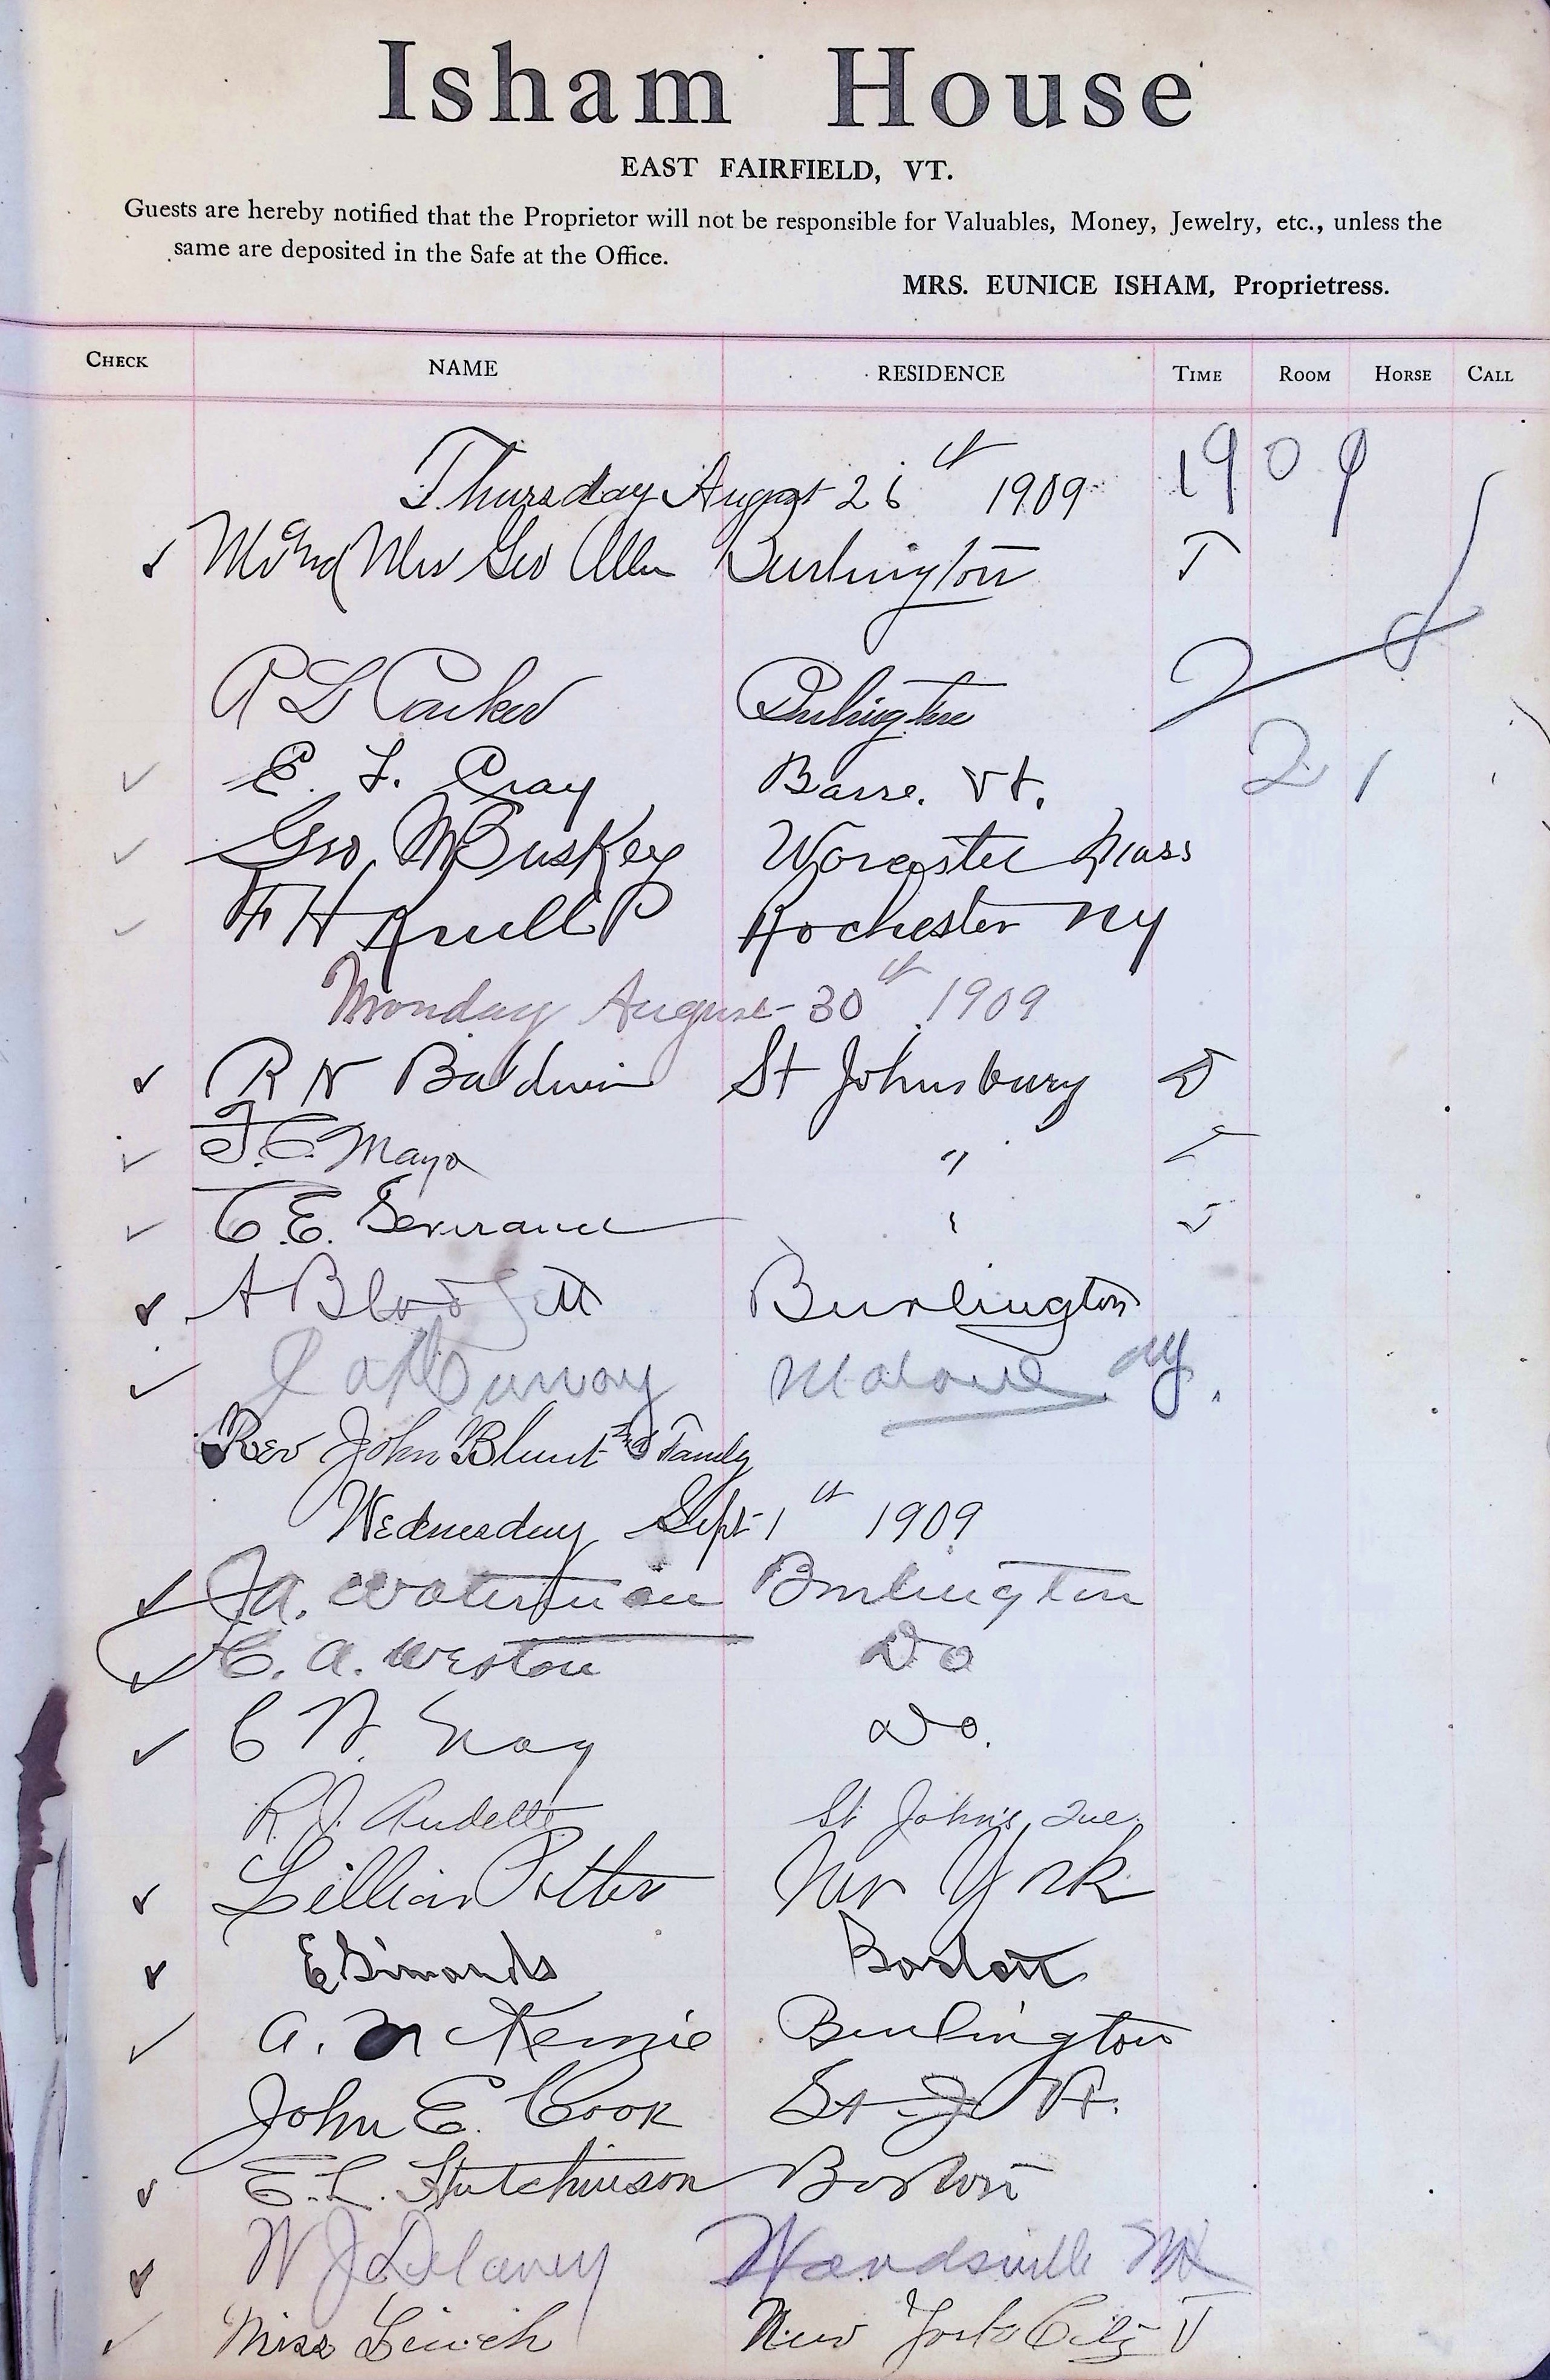 Isham House
EAST FAIRFIELD, VT.
Guests are hereby notified that the Proprietor will not be responsible for Valuables, Money, Jewelry, etc., unless the
same are deposited in the Safe at the Office.
MRS. EUNICE ISHAM, Proprietress.
CHECK NAME RESIDENCE TIME ROOM HORSE CALL
Thursday August 26th 1909 1909
Mr and Mrs Geo Allen Burlington T
R L Burlington
E. Barre. Vt. 21
Geo. Buskey Worcester Mass
F H Rochester NY
Monday August 30th 1909
R N Baldwin St Johnsbury
F. C. Mayo "
C. E. "
A Blodgett Burlington
Malone NY.
Rev John Blunt and Family
Wednesday Sept 1st 1909
J. A. Waterman Burlington
C. A. Weston Do
C N. Do.
R. J. Audette St John's, Que.
Lillian Potter New York
E Simonds Boston
A. McKenzie Burlington
John E. Cook St. J Vt.
E. L. Hutchinson Boston
W J Delaney Woodsville NH
Miss New York City T